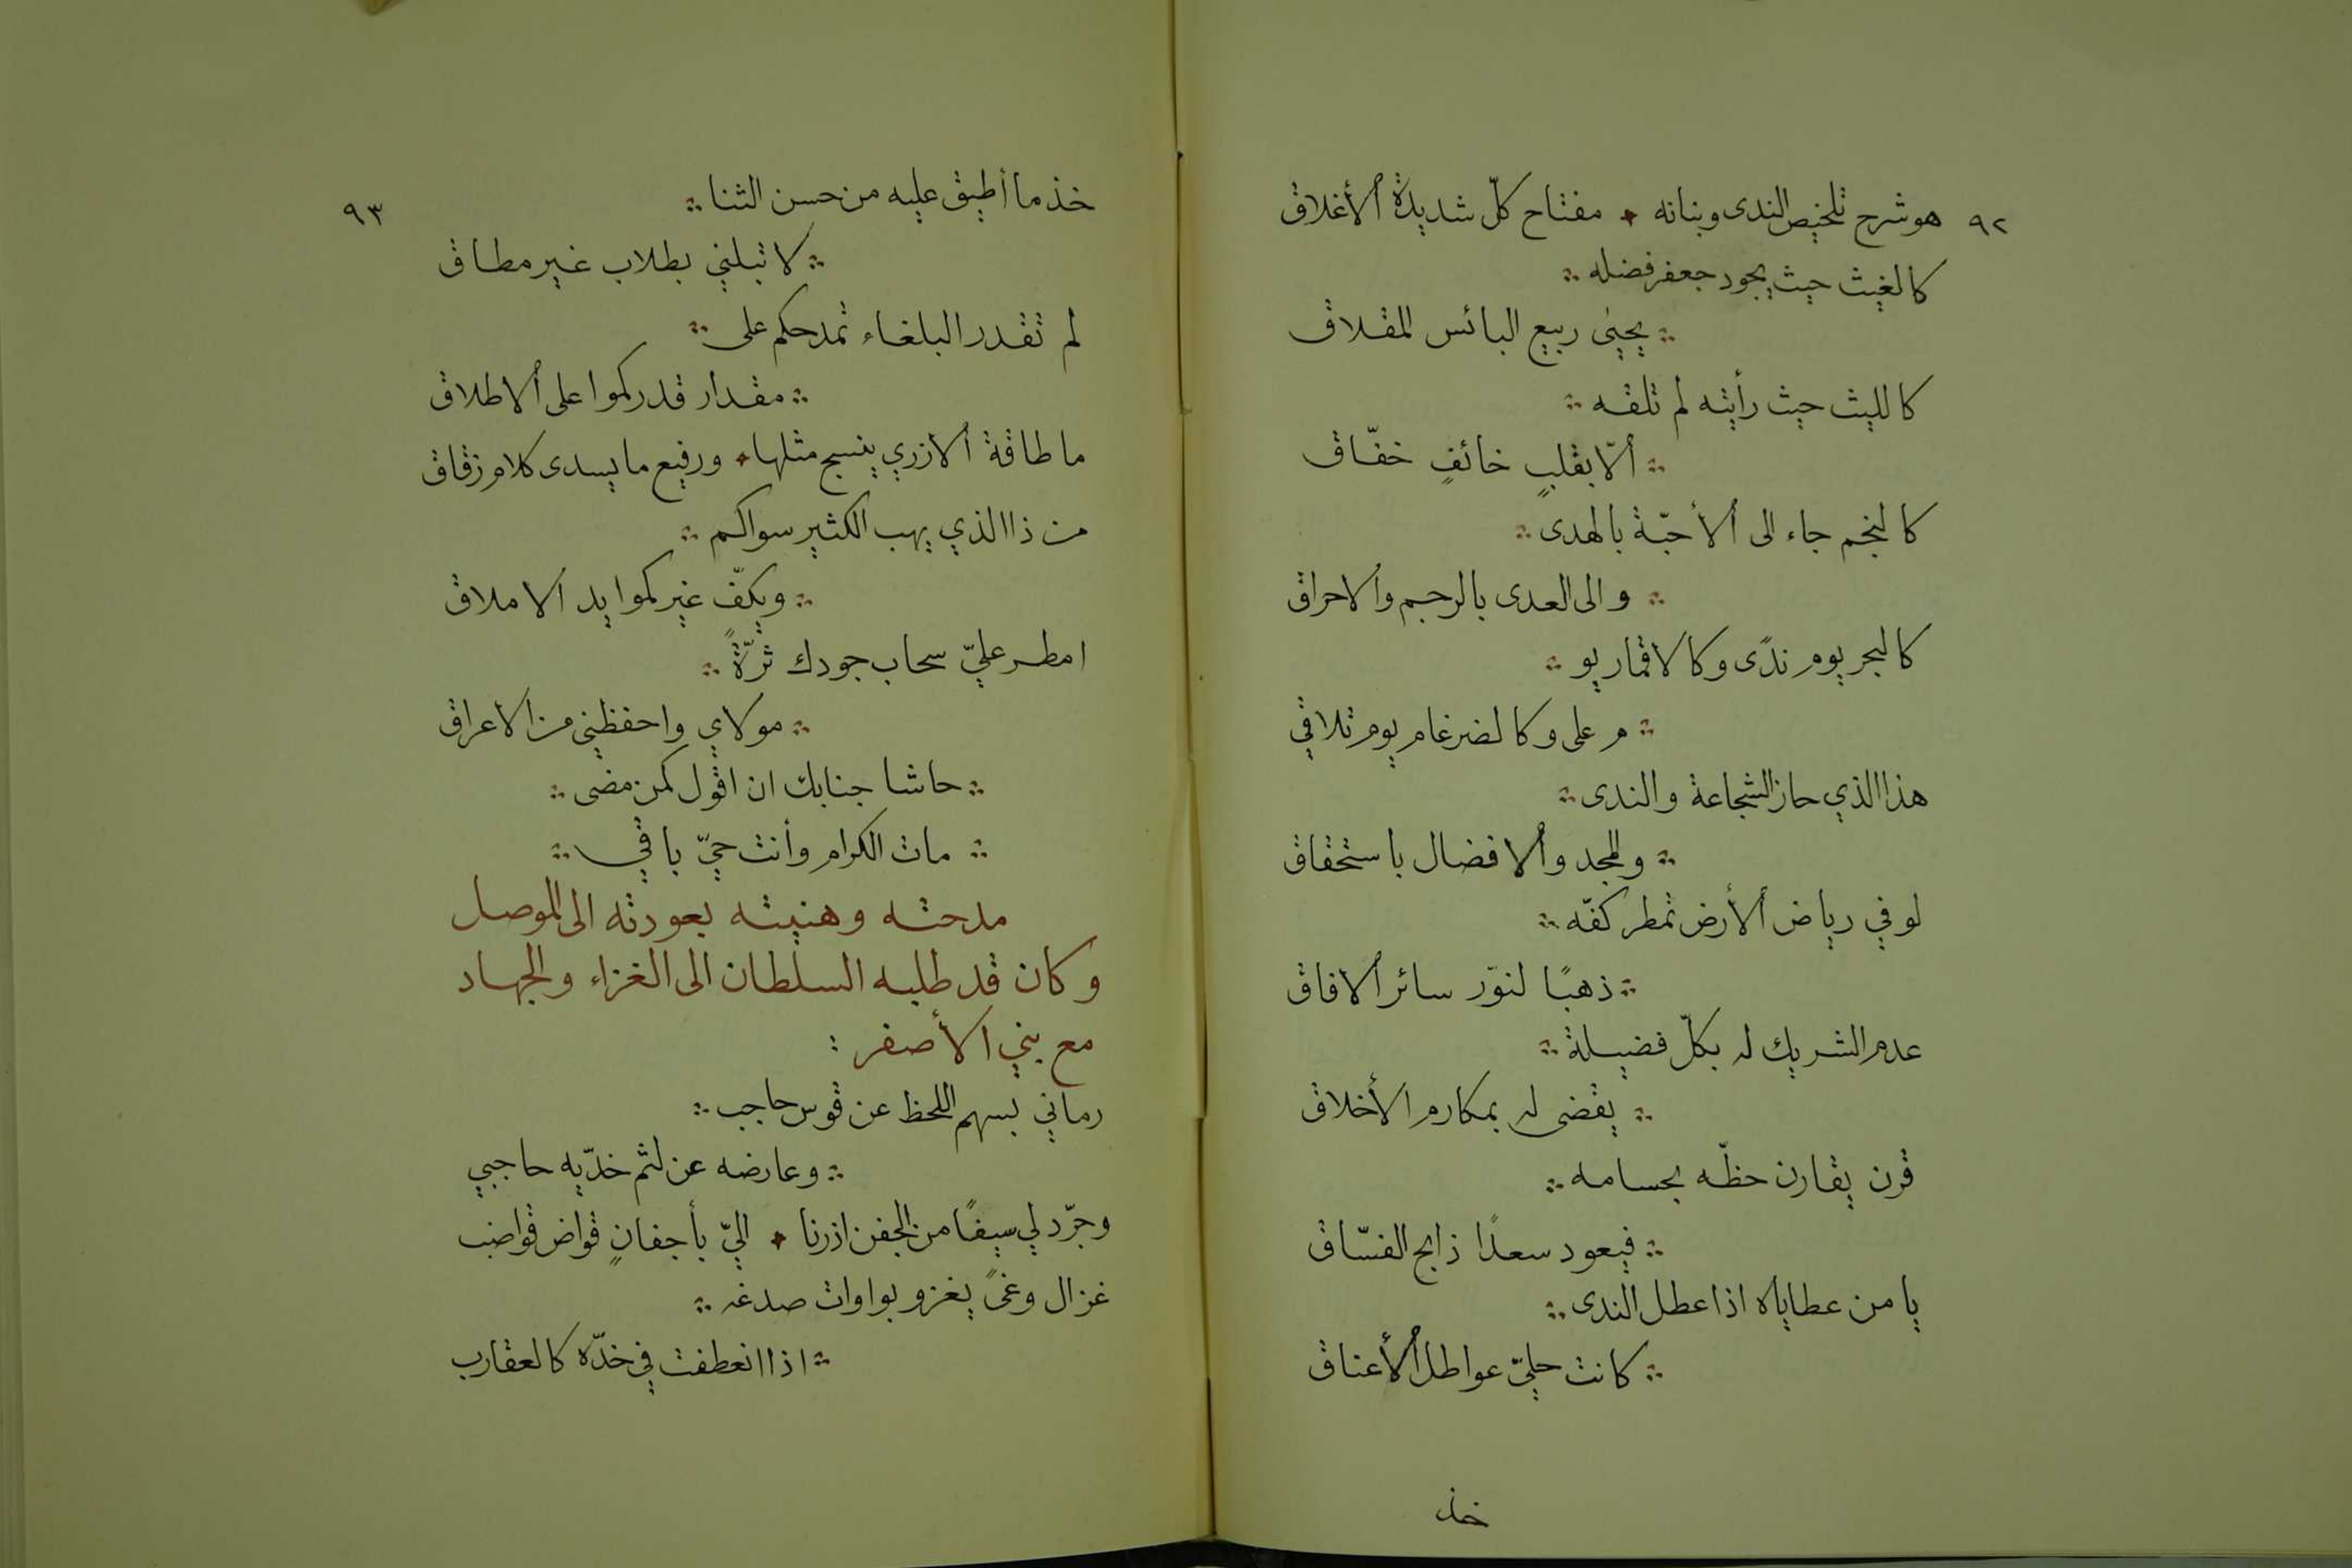 ٩٢
هو شرح تلخيص الندى وبنانه ۰ مفتاح كلّ شديدة ألأغلاق
كالغيث حيث يجود جعفر فضله ∴
∴ يحيى ربيع البائس المقلاق
كالليث حيث رأيته لم تلقه ∴
∴ ألّا بقلبٍ خائفٍ خفّاق
كالنجم جاء الى ألأحبّة بالهدى ∴
∴ والى العدى بالرجم وألاحراق
كالبحر يوم ندًى وكالاقمار يو ∴
∴ م على وكالضرغام يوم تلاقي
هذا الذي حاز الشجاعة والندى ∴
∴ والمجد وألافضال باستحقاق
لو في رياض ألأرض تمطر كفّه ∴
∴ ذهبًا لنوّر سائر ألافاق
عدم الشريك له بكلّ فضيلة ∴
∴ يقضى له بمكارم الأخلاق
قرن يقارن حظّه بحسامه ∴
∴ فيعود سعدًا ذابح الفسّاق
يا من عطاياه اذا عطل الندى ∴
∴ كانت حليّ عواطل ألأعناق
خذ
٩٣
خذ ما أطيق عليه من حسن الثنا ∴
∴ لا تبلني بطلاب غير مطاق
لم تقدر البلغاء تمدحكم على ∴
∴ مقدار قدركموا على ألاطلاق
ما طاقة ألازري ينسج مثلها ۰ ورفيع ما يسدى كلام زقاق
من ذا الذي يهب الكثير سواكم ∴
∴ ويكفّ غيركموا يد الاملاق
امطر عليّ سحاب جودك ثرّةً ∴
∴ مولاي واحفظني من الاعراق
∴ حاشا جنابك ان اقول كمن مضى ∴
∴ مات الكرام وأنت حيّ باقي ∴
مدحته وهنيته بعودته الى الموصل
وكان قد طلبه السلطان الى الغزاء والجهاد
مع بني الأصفر :
رماني بسهم اللحظ عن قوس حاجب ∴
∴ وعارضه عن لثم خدّيه حاجبي
وجرّد لي سيفًا من الجفن اذرنا ۰ اليّ بأجفانٍ قواض قواضب
غزال وغىً يغزو بواوات صدغه ∴
∴ اذا انعطفت في خدّه كالعقارب